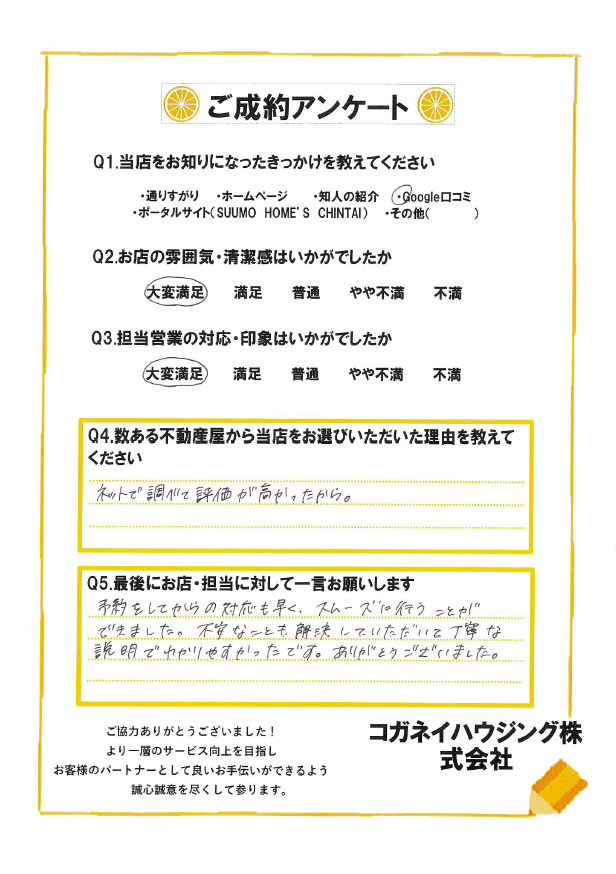 ご成約アンケート
Q1.当店をお知りになったきっかけを教えてください
・通りすがり ・ホームページ ・知人の紹介 ・Google口コミ
・ポータルサイト(SUUMO HOME'S CHINTAI) ・その他( )
Q2.お店の雰囲気・清潔感はいかがでしたか
大変満足 満足 普通 やや不満 不満
Q3.担当営業の対応・印象はいかがでしたか
大変満足 満足 普通 やや不満 不満
Q4.数ある不動産屋から当店をお選びいただいた理由を教えて
ください
ネットで調べて評価が高かったから。
Q5.最後にお店・担当に対して一言お願いします
予約をしてからの対応も早く、スムーズに行うことが
できました。不安なことも解決していただいて丁寧な
説明でわかりやすかったです。ありがとうございました。
ご協力ありがとうございました！
より一層のサービス向上を目指し
お客様のパートナーとして良いお手伝いができるよう
誠心誠意を尽くして参ります。
コガネイハウジング株
式会社